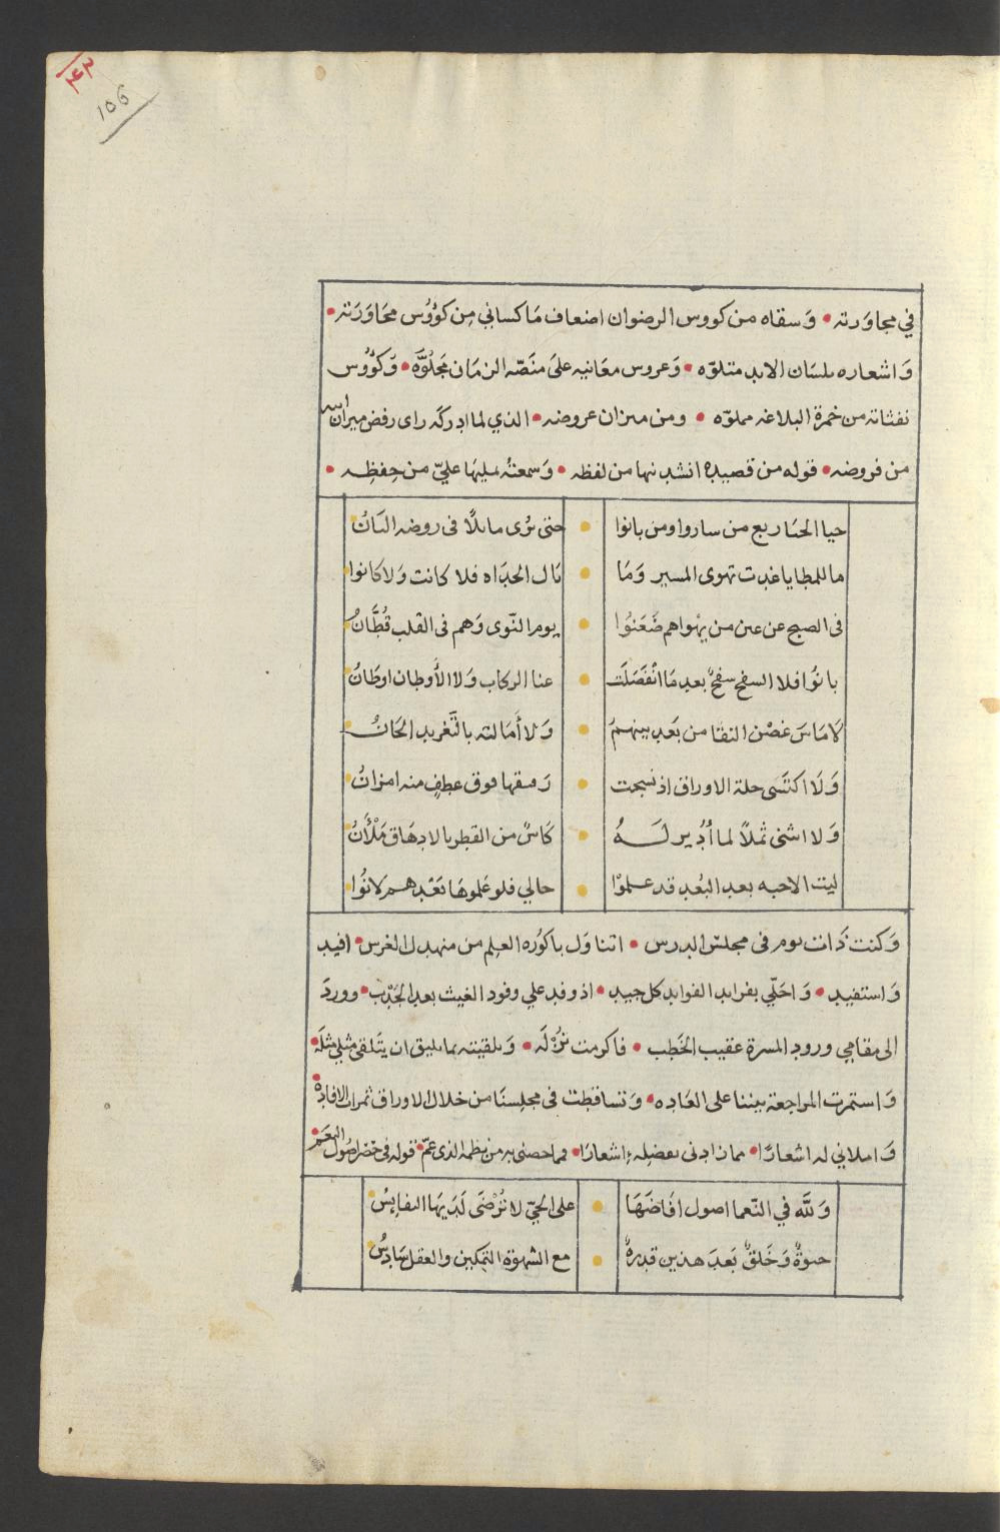 ٤٣
106
في مجاوَرته • وَسقاه من كووس الرضوان اضعاف مَا كساني مِن كؤوُس محَاوَرَته •
وَاشعاره بلسَان الابد متلوّه • وَعروس معَانيه علىَ منَصّه الزمَان مَجلُوَّه • وَكؤُوس
نفثاته من خمرة البلاغه مملوّه • ومن ميزان عروضه • الذي لما ادركَه راى رفض ميران
من فروضه • قوله من قصيده انشدنيها من لفظه • وَسمعتُه يمليهَا عليّ من حِفظِه •
حيا الحيَا ربع من ساروا ومن بانوا • حتى ترُى مايلاً فى روضه البَانُ
ما للمطايا غدت تهوى المسير وَمَا • مَال الحدَاه فلا كانت وَلا كانوا
فى الصبح عن عين من يهوَاهم ضَعَنُوا • يوم النّوى وَهم فى القلب قُطَّانُ
بانوُا فلا السفح سفحٌ بعد مَا انْفَصَلَت • عنا الركاب وَلا الأوطان اوطَانُ
لَا مَاسَ غصْن النقا من بَعدِ بينهمُ • وَلا أمَالته بالتَّغريد الحَانُ
وَلَا اكتَسَى حلة الاوراق اذ نسجت • رَ فوق عطفٍ منه امزانُ
وَلا انثنى ثملاً لما أُدُير لَهُ • كَاسٌ من القطر بالادهَاق مَلْأَنُ
ليت الاحبه بعد البُعد قد علموُا • حالي فلو عَلموهَا بَعْدهم لانُوا
وَكنت ذَات يوم فى مجلسْ الدرس • اتناوَل باكوُره العِلم من منهدل الغرس • افيد
وَاستفيد • وَاحَلّي بفرايد الفوايد كل جيد • اذ وفد علي وفود الغيث بعد الجَدْب • ووردَ
الى مقامي ورود المسرة عقيب الخَطب • فاكرمت نزُله • وَتلقيته بما يليق ان يتَلقى مثلي مثلَه •
وَاستمرت المراجعة بيننا على العَاده • وَتساقطت فى مجلسنَا من خلال الاوراق ثمرات الافادة •
وَاملاني له اشعارًا • مما زادنى بفضلِه إشعارًا • فمما خصنى به من نظمه الذى عمّ • قوله فى حَصْر اصُول النعَم •
وَللَّه في النّعما اصول افَاضَهَا • على الحَيّ لا تُرْضَى لَدَيهَا النفايِسُ
حيوةٌ وَخَلقٌ بَعدَ هذين قدرةٌ • مع الشهوَة التمكين والعقل سَادِسُ